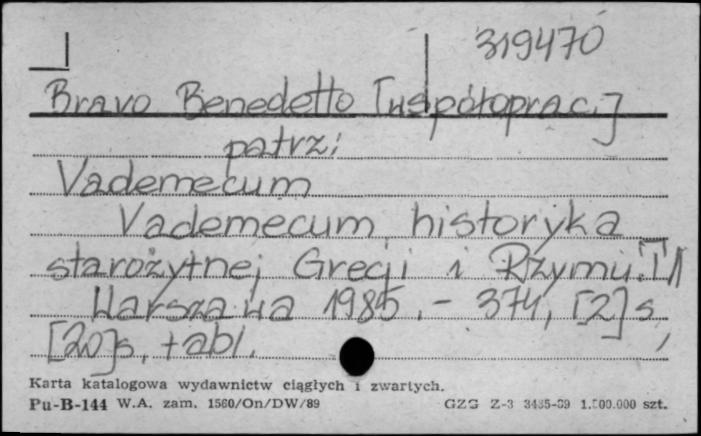 319470
Bravo Benedetto [współoprac.]
patrz:
Vademecum
Vademecum historyka
starożytnej Grecji i Rzymu. T. 1
Warszawa 1985. - 374, [2] s,
[20] s, tabl.
Karta katalogowa wydawnictw ciągłych i zwartych.
Pu-B-144 W.A. zam. 1560/On/DW/89 GZG Z-3 3435-89 1.500.000 szt.